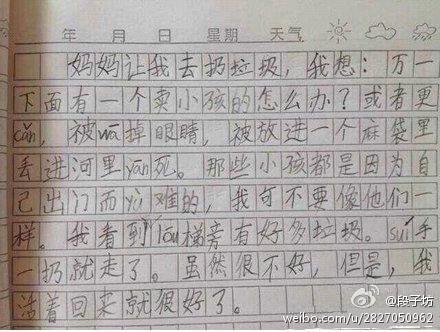 年 月 日 星期 天气
妈妈让我去扔垃圾，我想：万一
下面有一个卖小孩的怎么办？或者更
cǎn，被wā掉眼睛，被放进一个麻袋里
丢进河里yān死。那些小孩都是因为自
己出门而yù难的，我可不要像他们一
样。我看到lóu梯旁有好多垃圾。suí手
一扔就走了。虽然很不好，但是，我
活着回来就很好了。
@段子坊
weibo.com/u/2827050962